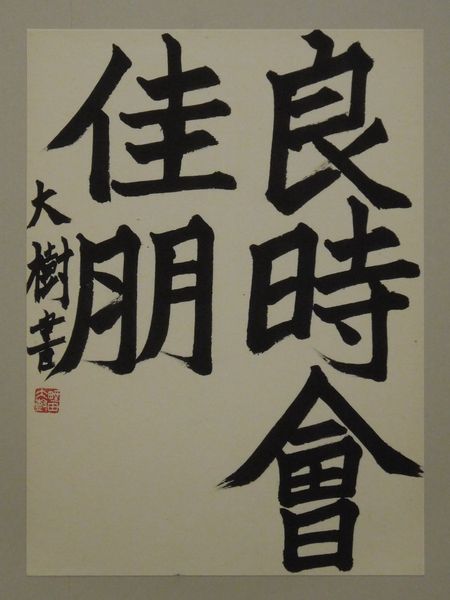 良時會
佳朋
大樹書